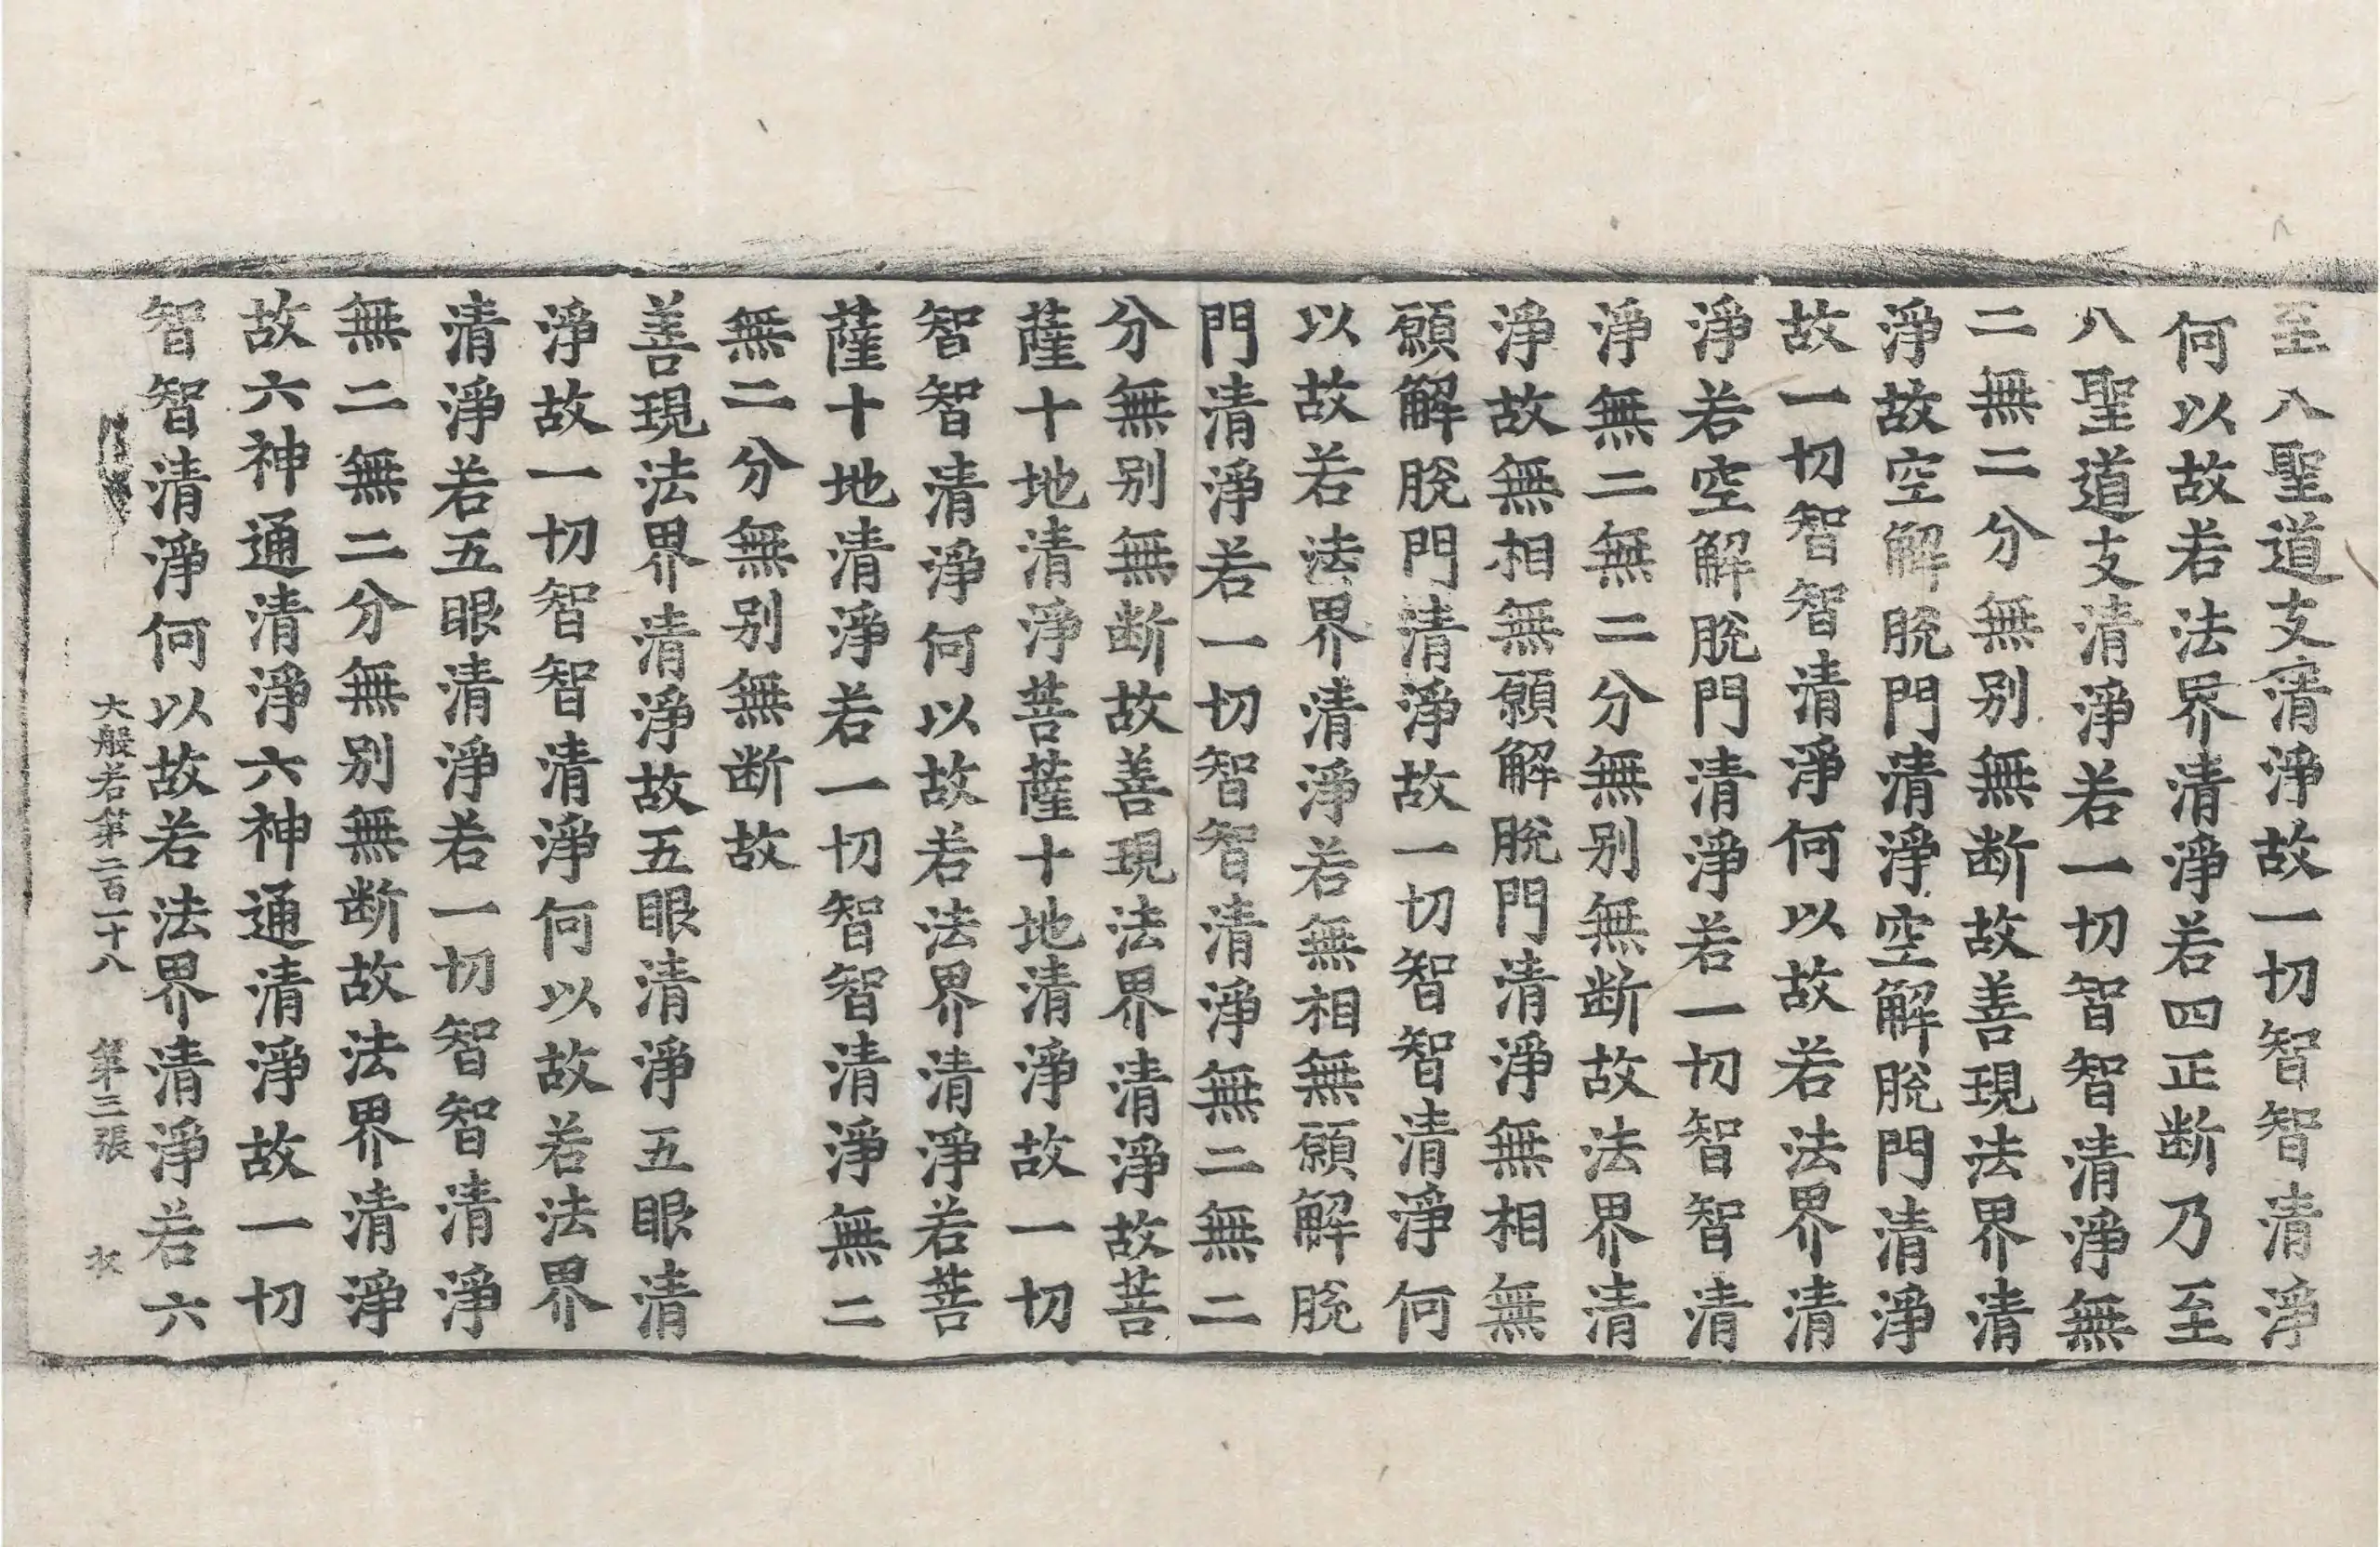 至八聖道支清淨故一切智智清淨
何以故若法界清淨若四正断乃至
八聖道支清淨若一切智智清淨無
二無二分無別無断故善現法界清
淨故空解脫門清淨空解脫門清淨
故一切智智清淨何以故若法界清
淨若空解脫門清淨若一切智智清
淨無二無二分無別無断故法界清
淨故無相無願解脫門清淨無相無
願解脫門清淨故一切智智清淨何
以故若法界清淨若無相無願解脫
門清淨若一切智智清淨無二無二
分無別無断故善現法界清淨故菩
薩十地清淨菩薩十地清淨故一切
智智清淨何以故若法界清淨若菩
薩十地清淨若一切智智清淨無二
無二分無別無断故
善現法界清淨故五眼清淨五眼清
淨故一切智智清淨何以故若法界
清淨若五眼清淨若一切智智清淨
無二無二分無別無断故法界清淨
故六神通清淨六神通清淨故一切
智智清淨何以故若法界清淨若六
大般若第二百一十八 第三張